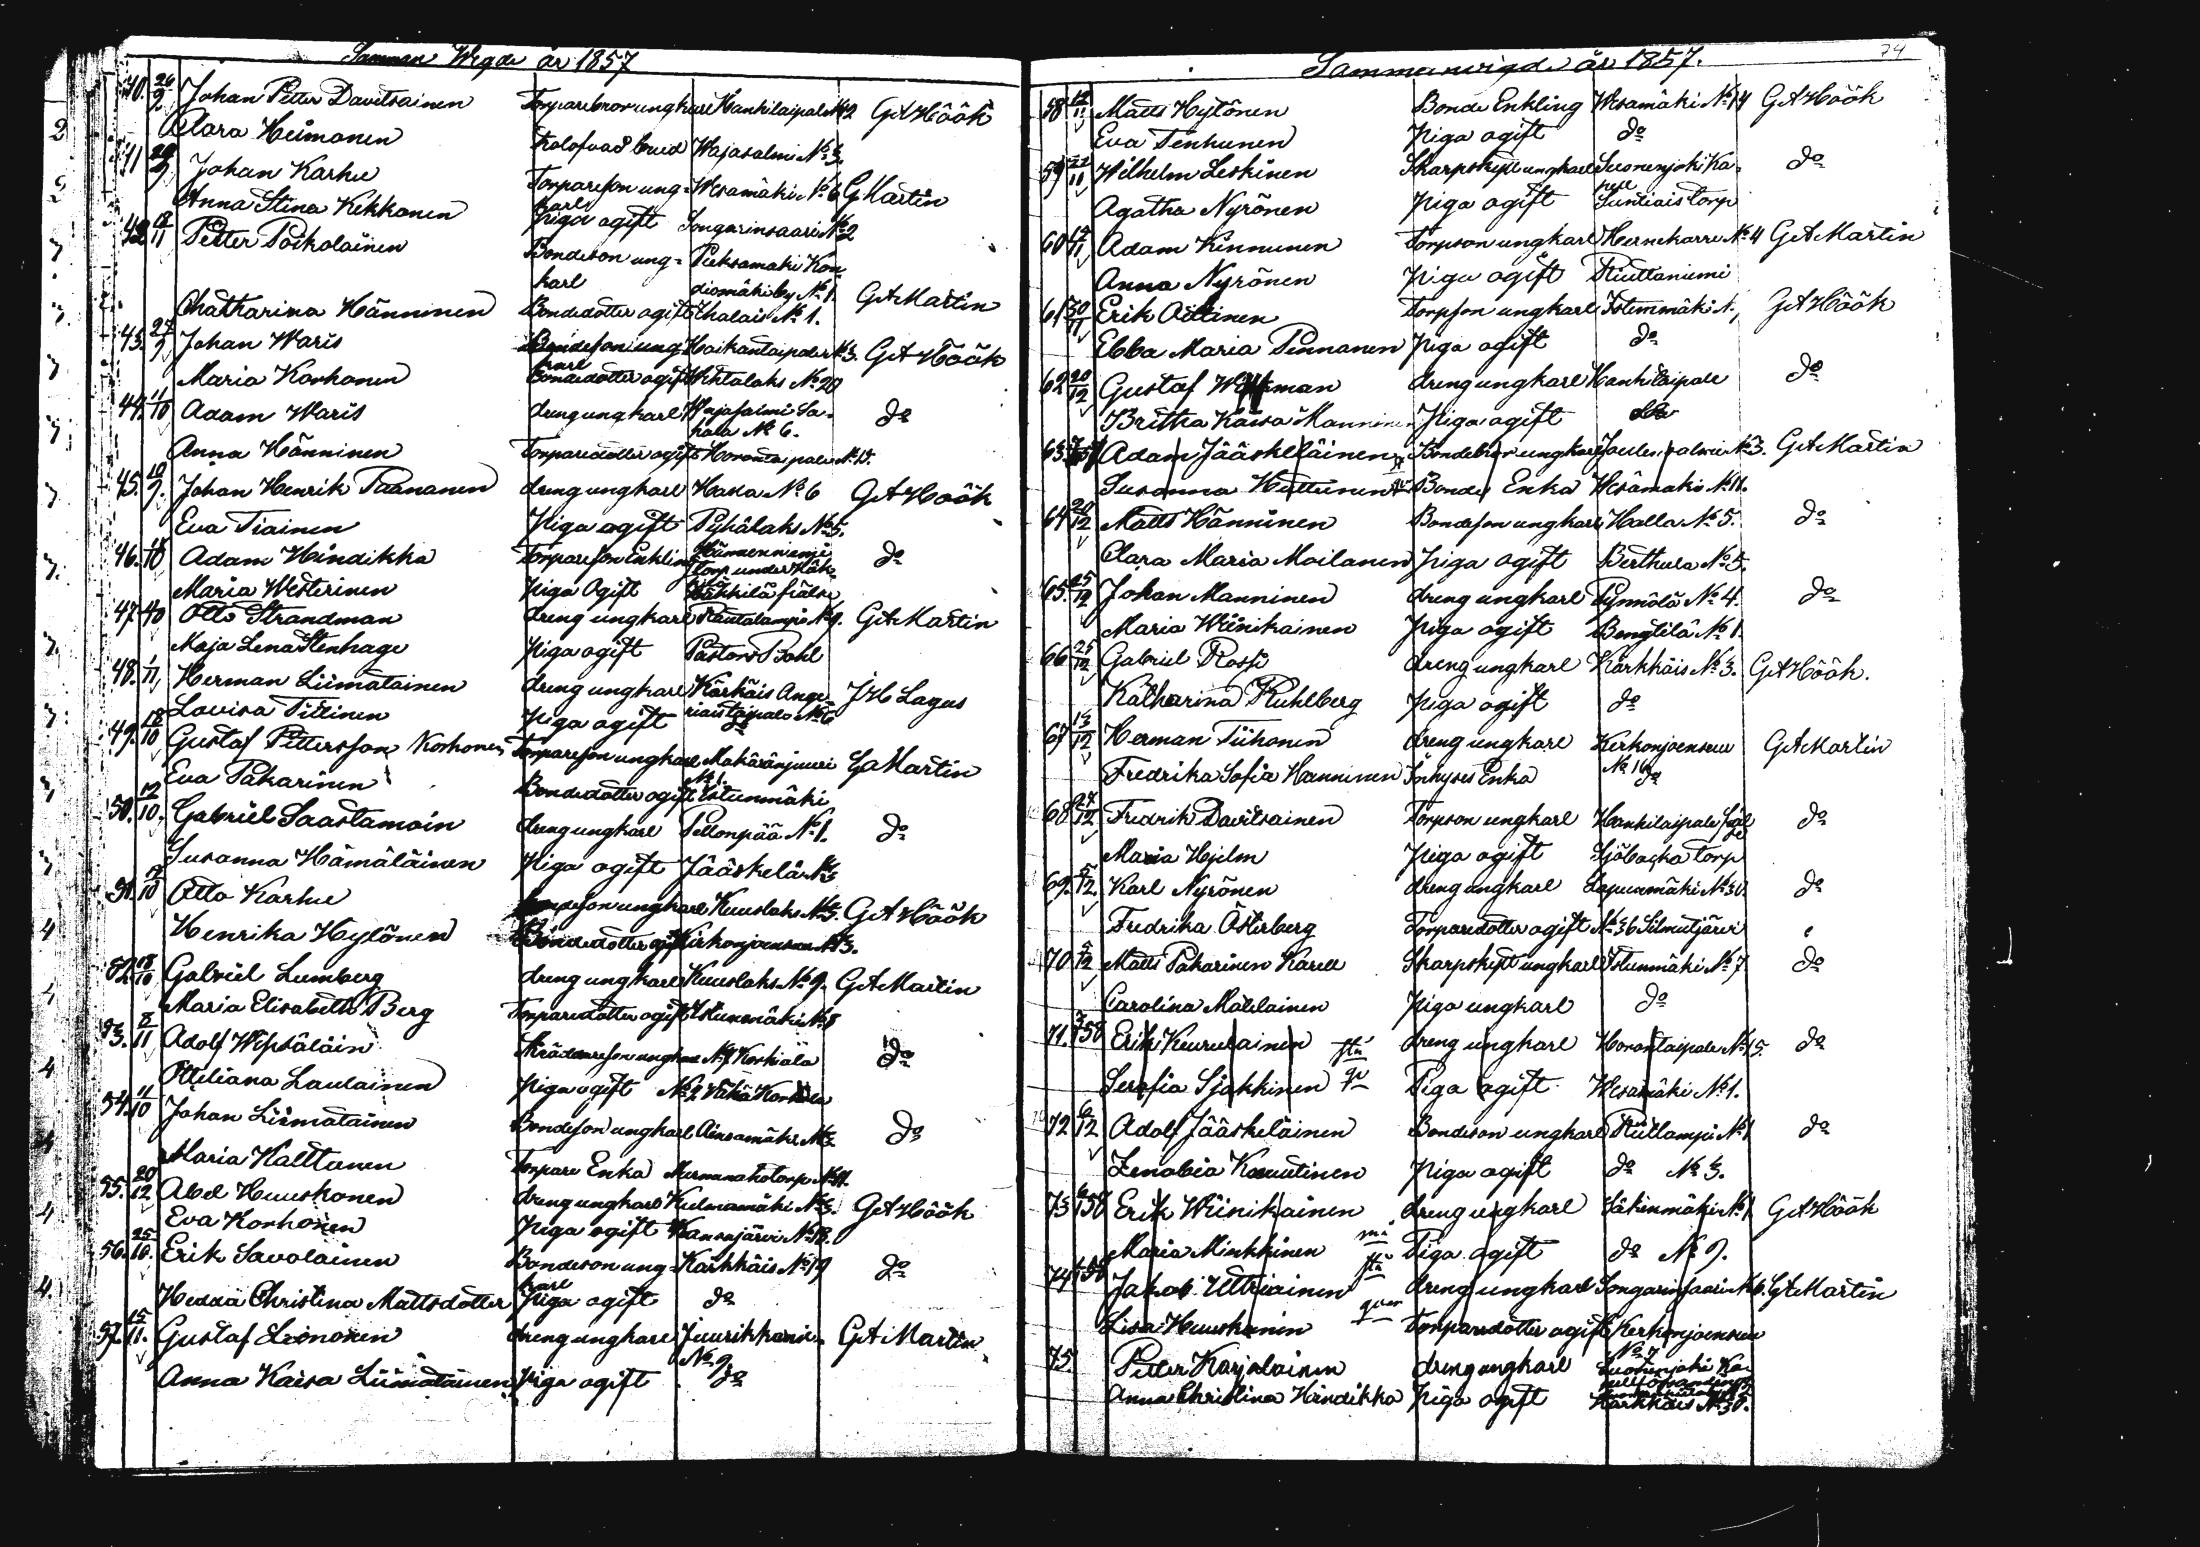 Samman Wigde år 1857
40. 26/9 Johan Petter Davitsainen Torparebror ungkarl Hankilaipale No 2 GAHöök
Clara Heimonen Wajasalmi No 3.
41 29/9 Johan Karhu Torpareson ung= Wesamäki No 6 GMartin
karl
Anna Stina Kekkonen piga ogift Songarinsaari No 2
42 18/11 Petter Poikolainen Bondeson ung= Pieksamäki Kon
karl diomäki by No 1.
Chatharina Hänninen Bondedotter ogift Ihalais No 1. GAMartin
43. 27/9 Johan Waris Bondeson ung Haikantaipale No 3. GAHöök
karl
Maria Korhonen Bondedotter ogift Wehtalaks No 20
44. 11/10 Adam Waris dreng ungkarl Wajasalmi Sa-
hala No 6. do
Anna Hänninen Torparedotter ogift Horontaipale No 15.
45. 10/9. Johan Henrik Paananen dreng ungkarl Hasa No 6 GAHöök
Eva Tiainen Piga ogift Pyhälaks No 5.
46. 18/10 Adam Hindikka Torpareson Enkling Hännenniemi do
Torp under
Maria Westerinen Piga Ogift
47. Otto Strandman dreng ungkarl Rautalampi No 9. GAMartin
Maja Lena Stenhage Piga ogift Pastor Bohl
48. 1/11 Herman Liimatainen dreng ungkarl Kärkäis Ange- JH Lagus
riaistaipale No 6
Lovisa Titinen Piga ogift do
49. 18/10 Gustaf Pettersson Korhonen Torpareson ungkarl Makäränjuuri GAMartin
No 1.
Eva Pakarinen Bondedotter ogift Istunmäki
50. 12/10. Gabriel Saastamoin dreng ungkarl Pellonpää No 1. do
Susanna Hämäläinen Piga ogift Jääskelä No 3
51. 12/10 Otto Karhu ungkarl Kuuslaks No 3. GAHöök
Henrika Hylönen Bondedotter ogift Kerkonjoensuu No 3.
52. 18/10 Gabriel Lumberg dreng ungkarl Kuuslaks No 9. GAMartin
Maria Elisabeth Berg Torparedotter ogift Istunmäki No 8
53. 8/11 Adolf Wepsäläin Skräddareson ungkarl No 7 Korhiala do
Ottiliana Laulainen Piga ogift No 2
54. 11/10 Johan Liimatainen Bondeson ungkarl Ainsamäki No 2 do
Maria Kalttanen Torpare Enka
55. 20/12 Abel Huuskonen dreng ungkarl Kulmamäki No 3. GAHöök
Eva Korhonen Piga ogift Hansnjärvi No 18.
56. 25/10. Erik Savolainen Bondeson ung= Karkkäis No 19 do
karl
Hedda Christina Mattsdotter Piga ogift do
57. 15/11. Gustaf Leinonen dreng ungkarl Juurikkanie- GAMartin
No 9.
Anna Kaisa Liimatainen Piga ogift do
Sammanvigde år 1857. 74
58 12/11 Matts Hytönen Bonde Enkling Wesamäki No 14 GAHöök
Eva Tenhunen Piga ogift do
59 22/11 Wilhelm Leskinen Skarpskytt ungkarl Suonenjoki Ka= do
pell
Agatha Nyrönen Piga ogift Suntiais torp
60 12/11 Adam Kinnunen Torpson ungkarl Hernekarre No 4 GAMartin
Anna Nyrönen Piga ogift Riuttaniemi
61 30/11 Erik Oittinen Torpson ungkarl Istunmäki No 1, GAHöök
Ebba Maria Pennanen Piga ogift do
62 20/12 Gustaf dreng ungkarl Hankilaipale do
Britha Kaisa Manninen Piga ogift do
63 Adam Jääskeläinen Bondebror ungkarl No 3. GAMartin
Susanna Huttunen Bonde Enka Wesämäki No 11.
64 20/12 Matts Hänninen Bondeson ungkarl Halla No 5. do
Clara Maria Moilanen Piga ogift Berthula No 5.
65. 25/12 Johan Manninen dreng ungkarl Pynnölä No 4. do
Maria Weinikainen Piga ogift Bengtilä No 1.
66 25/12 Gabriel Rossi dreng ungkarl Kärkkäis No 3. GAHöök.
Katharina Ruhlberg Piga ogift do
67 13/12 Herman Tiihonen dreng ungkarl Kerkonjoensuu GAMartin
No 16
Fredrika Sofia Hanninen Inhyses Enka do
68 27/12 Fredrik Davitsainen Torpson ungkarl Hankilaipale do
Maria Hjelm Piga ogift Sjöbacka Torp
69. 5/12. Karl Nyrönen dreng ungkarl Lapunmäki No 30. do
Fredrika Österberg Torparedotter ogift No 36 Silmutjärvi
70 5/12 Matts Pakarinen Karell Skarpskytt ungkarl Istunmäki No 7 do
Carolina Matilainen Piga ungkarl do
71. 3/1 58 Erik Keurulainen dreng ungkarl Horontaipale No 15. do
Serafia Sjakkinen Piga ogift Wesamäki No 1.
72 6/12 Adolf Jääskeläinen Bondeson ungkarl Rütlampi No 1 do
Zenobia Kuutinen Piga ogift do No 3.
73 6/1 58 Erik Weinikainen dreng ungkarl Säkinmäki No 1 GAHöök
Maria Minkkinen Piga ogift do No 9.
74 Jakob Uttriainen dreng ungkarl Songarinsaari No 6. GAMartin
Lisa Huuskonen Torparedotter ogift Kerkonjoensuu
No 7
75. Petter Karjalainen dreng ungkarl Suonenjoki Ka-
Anna Christina Hindikka Piga ogift Karkkäis No 30.